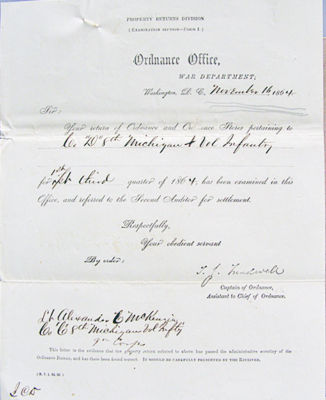 PROPERTY RETURNS DIVISION
(EXAMINATION SECTION—FORM I.)
Ordnance Office,
WAR DEPARTMENT,
Washington, D. C., November 16, 1864.
Sir:
Your return of Ordnance and Ordnance Stores pertaining to
Co "D" 8th Michigan Vol Infantry
for third quarter of 1864, has been examined in this
Office, and referred to the Second Auditor for settlement.
Respectfully,
Your obedient servant
By order:
Captain of Ordnance,
Assistant to Chief of Ordnance.
Lt Alexander McKenzie
Co "C" 8th Michigan Vol Infty
9th Corps
This letter is the evidence that the property return referred to above has passed the administrative scrutiny of the
Ordnance Bureau, and has been found correct. IT SHOULD BE CAREFULLY PRESERVED BY THE RECEIVER.